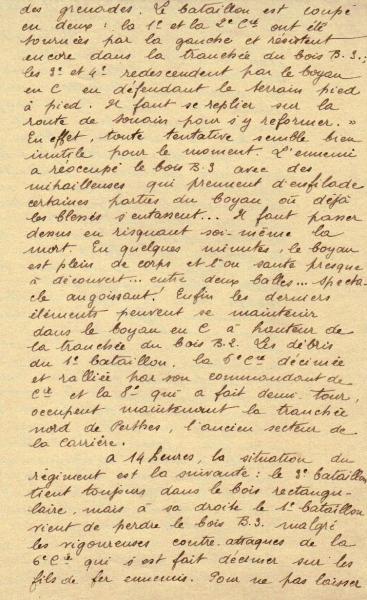 des grenades. Le bataillon est coupé
en deux : la 1e et la 2e Cie ont été
tournées par la gauche et résistent
encore dans la tranchée du bois B.3.;
les 3e et 4e redescendent par le boyau
en C en défendant le terrain pied
à pied. Il faut se replier sur la
route de Souain pour s'y reformer. »
En effet, toute tentative semble bien
inutile pour le moment. L'ennemi
a réoccupé le bois B.3 avec des
mitrailleuses qui prennent d'enfilade
certaines parties du boyau où déjà
les blessés s'entassent... Il faut passer
dessus en risquant soi-même la
mort. En quelques minutes, le boyau
est plein de corps et l'on saute presque
à découvert... entre deux balles... specta-
cle angoissant! Enfin les derniers
éléments peuvent se maintenir
dans le boyau en C à hauteur de
la tranchée du bois B.2. Les débris
du 1e bataillon, la 6e Cie décimée
et ralliée par son commandant de
Cie et la 8e qui a fait demi-tour,
occupent maintenant la tranchée
nord de Perthes, l'ancien secteur de
la Carrière.
à 14 heures, la situation du
régiment est la suivante : le 3e bataillon
tient toujours dans le bois rectangu-
laire, mais à sa droite le 1e bataillon
vient de perdre le bois B.3. malgré
les vigoureuses contre-attaques de la
6e Cie qui s'est fait décimer sur les
fils de fer ennemis. Pour ne pas laisser